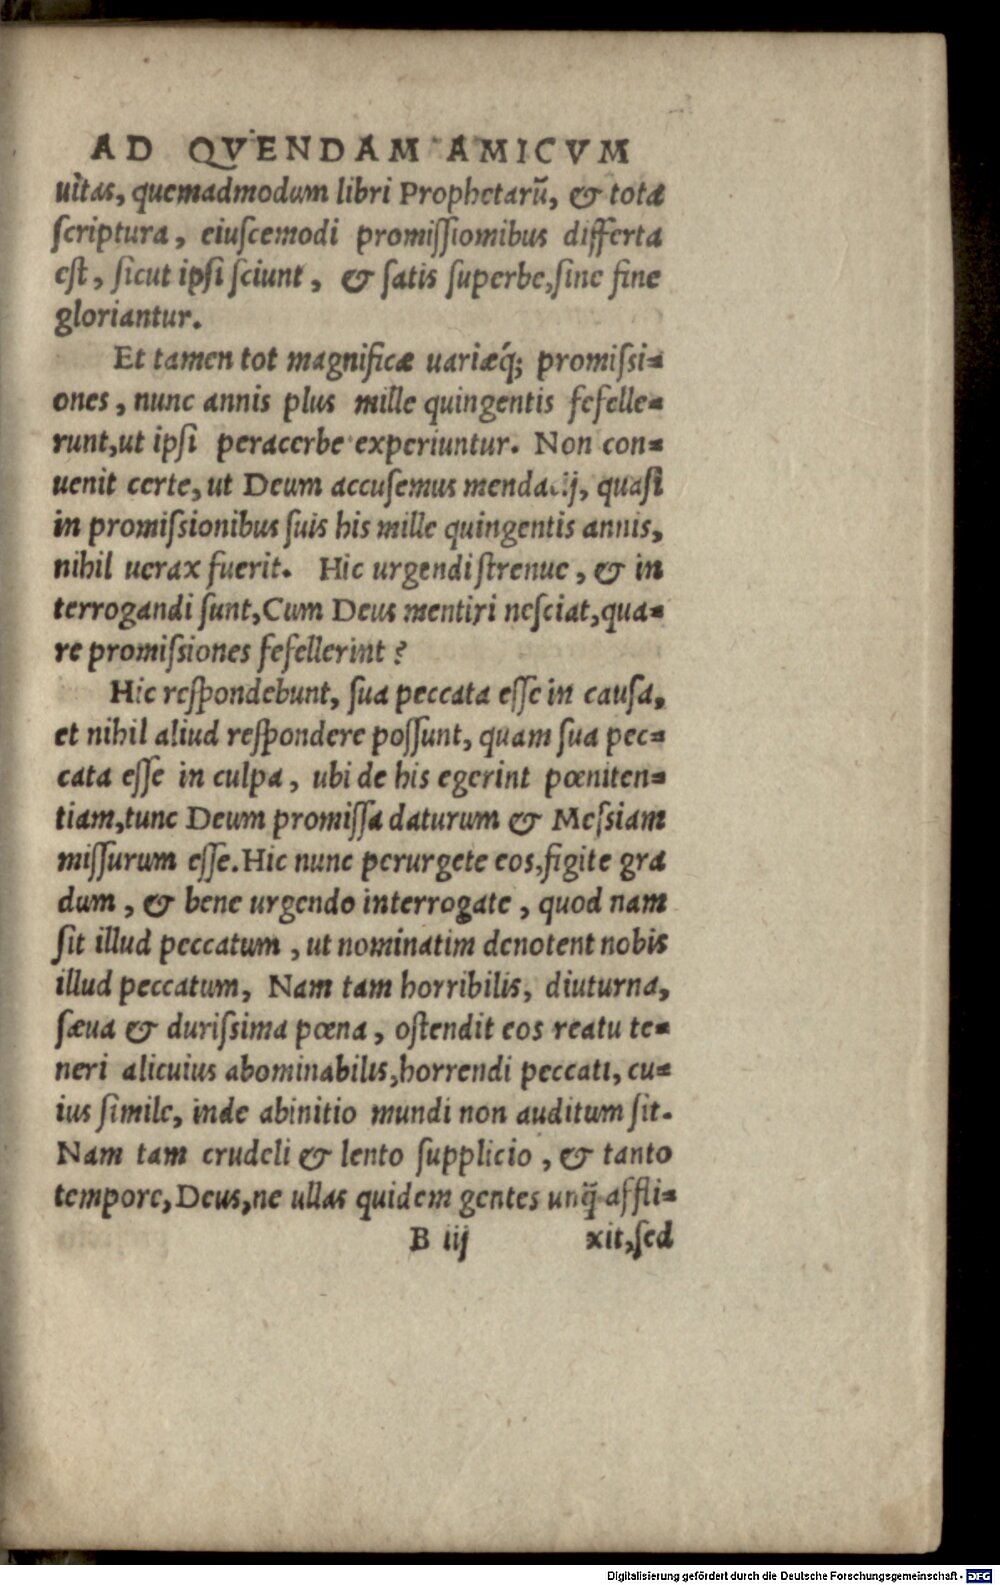 AD QVENDAM AMICVM
uitas, quemadmodum libri Prophetarū, & tota
ſcriptura, eiuſcemodi promiſſiomibus differta
eſt, ſicut ipſi ſciunt, & ſatis ſuperbe, ſine fine
gloriantur.
Et tamen tot magnificæ uariæq́; promiſsi=
ones, nunc annis plus mille quingentis fefelle=
runt, ut ipſi peracerbe experiuntur. Non con=
uenit certe, ut Deum accuſemus mendacij, quaſi
in promiſsionibus ſuis his mille quingentis annis,
nihil uerax fuerit. Hic urgendi ſtrenue, & in
terrogandi ſunt, Cum Deus mentiri neſciat, qua=
re promiſsiones fefellerint?
Hic reſpondebunt, ſua peccata eſſe in cauſa,
et nihil aliud reſpondere poſſunt, quam ſua pec=
cata eſſe in culpa, ubi de his egerint pœniten=
tiam, tunc Deum promiſſa daturum & Meſsiam
miſſurum eſſe. Hic nunc perurgete eos, figite gra
dum, & bene urgendo interrogate, quod nam
ſit illud peccatum, ut nominatim denotent nobis
illud peccatum, Nam tam horribilis, diuturna,
ſæua & duriſsima pœna, oſtendit eos reatu te=
neri alicuius abominabilis, horrendi peccati, cu=
ius ſimile, inde abinitio mundi non auditum ſit.
Nam tam crudeli & lento ſupplicio, & tanto
tempore, Deus, ne ullas quidem gentes unq̃ affli=
B iij xit, ſed
Digitalisierung gefördert durch die Deutsche Forschungsgemeinschaft - DFG